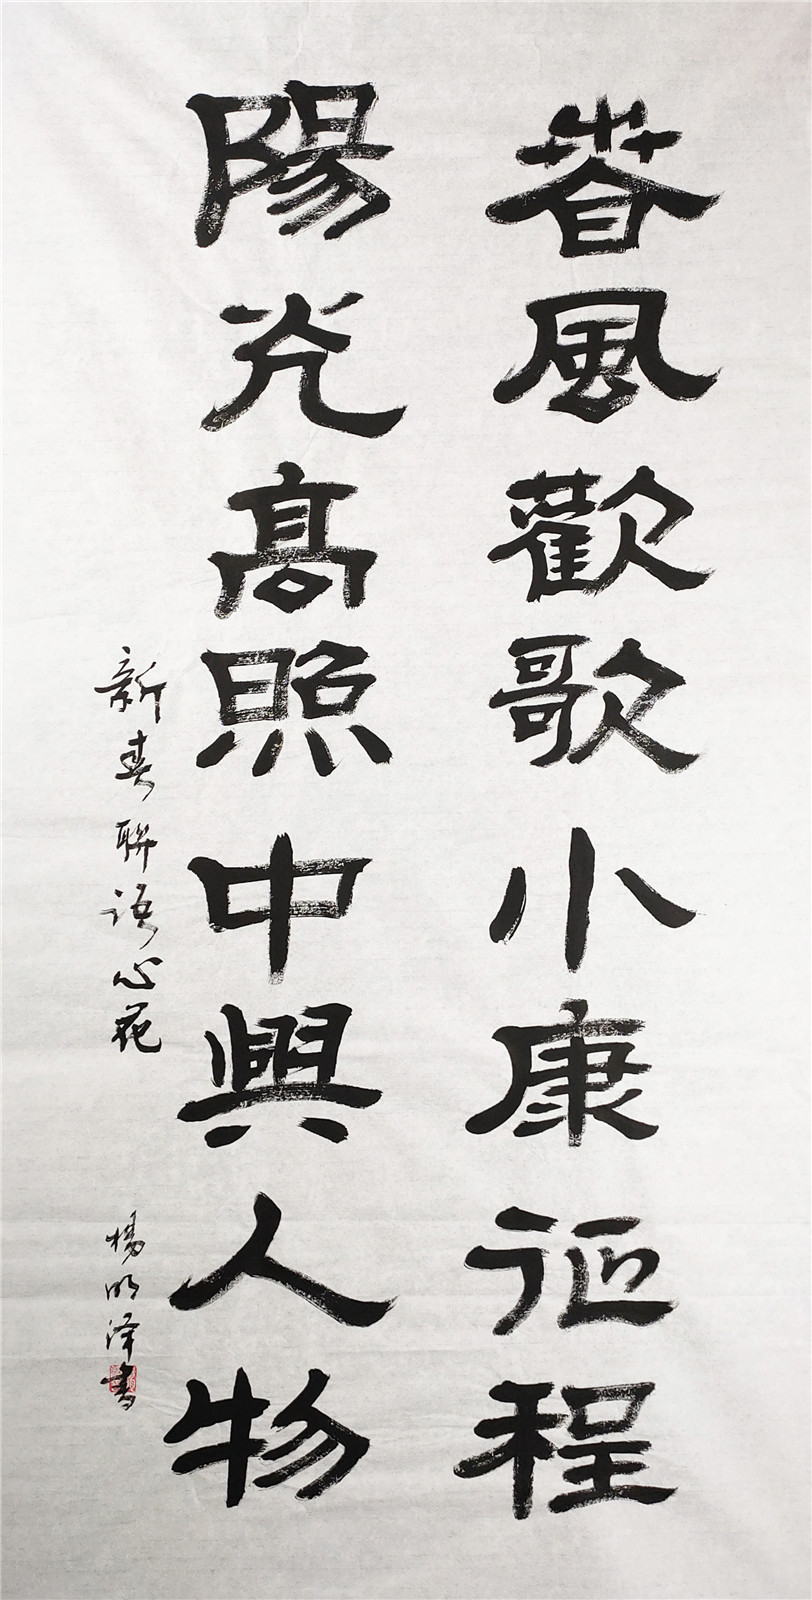 春風歡歌小康征程
陽光高照中興人物
新春聯語心花
楊明澤書